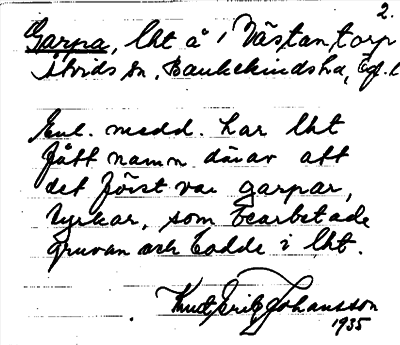 2.
Garpa, lht å 1 Västantorp
Åtvids sn, Bankekinds hd, Ög. l
Enl. medd. har lht
fått namn därav att
det först var garpar,
tyskar, som bearbetade
gruvan och bodde i lht.
Knut Eritz Johansson
1935